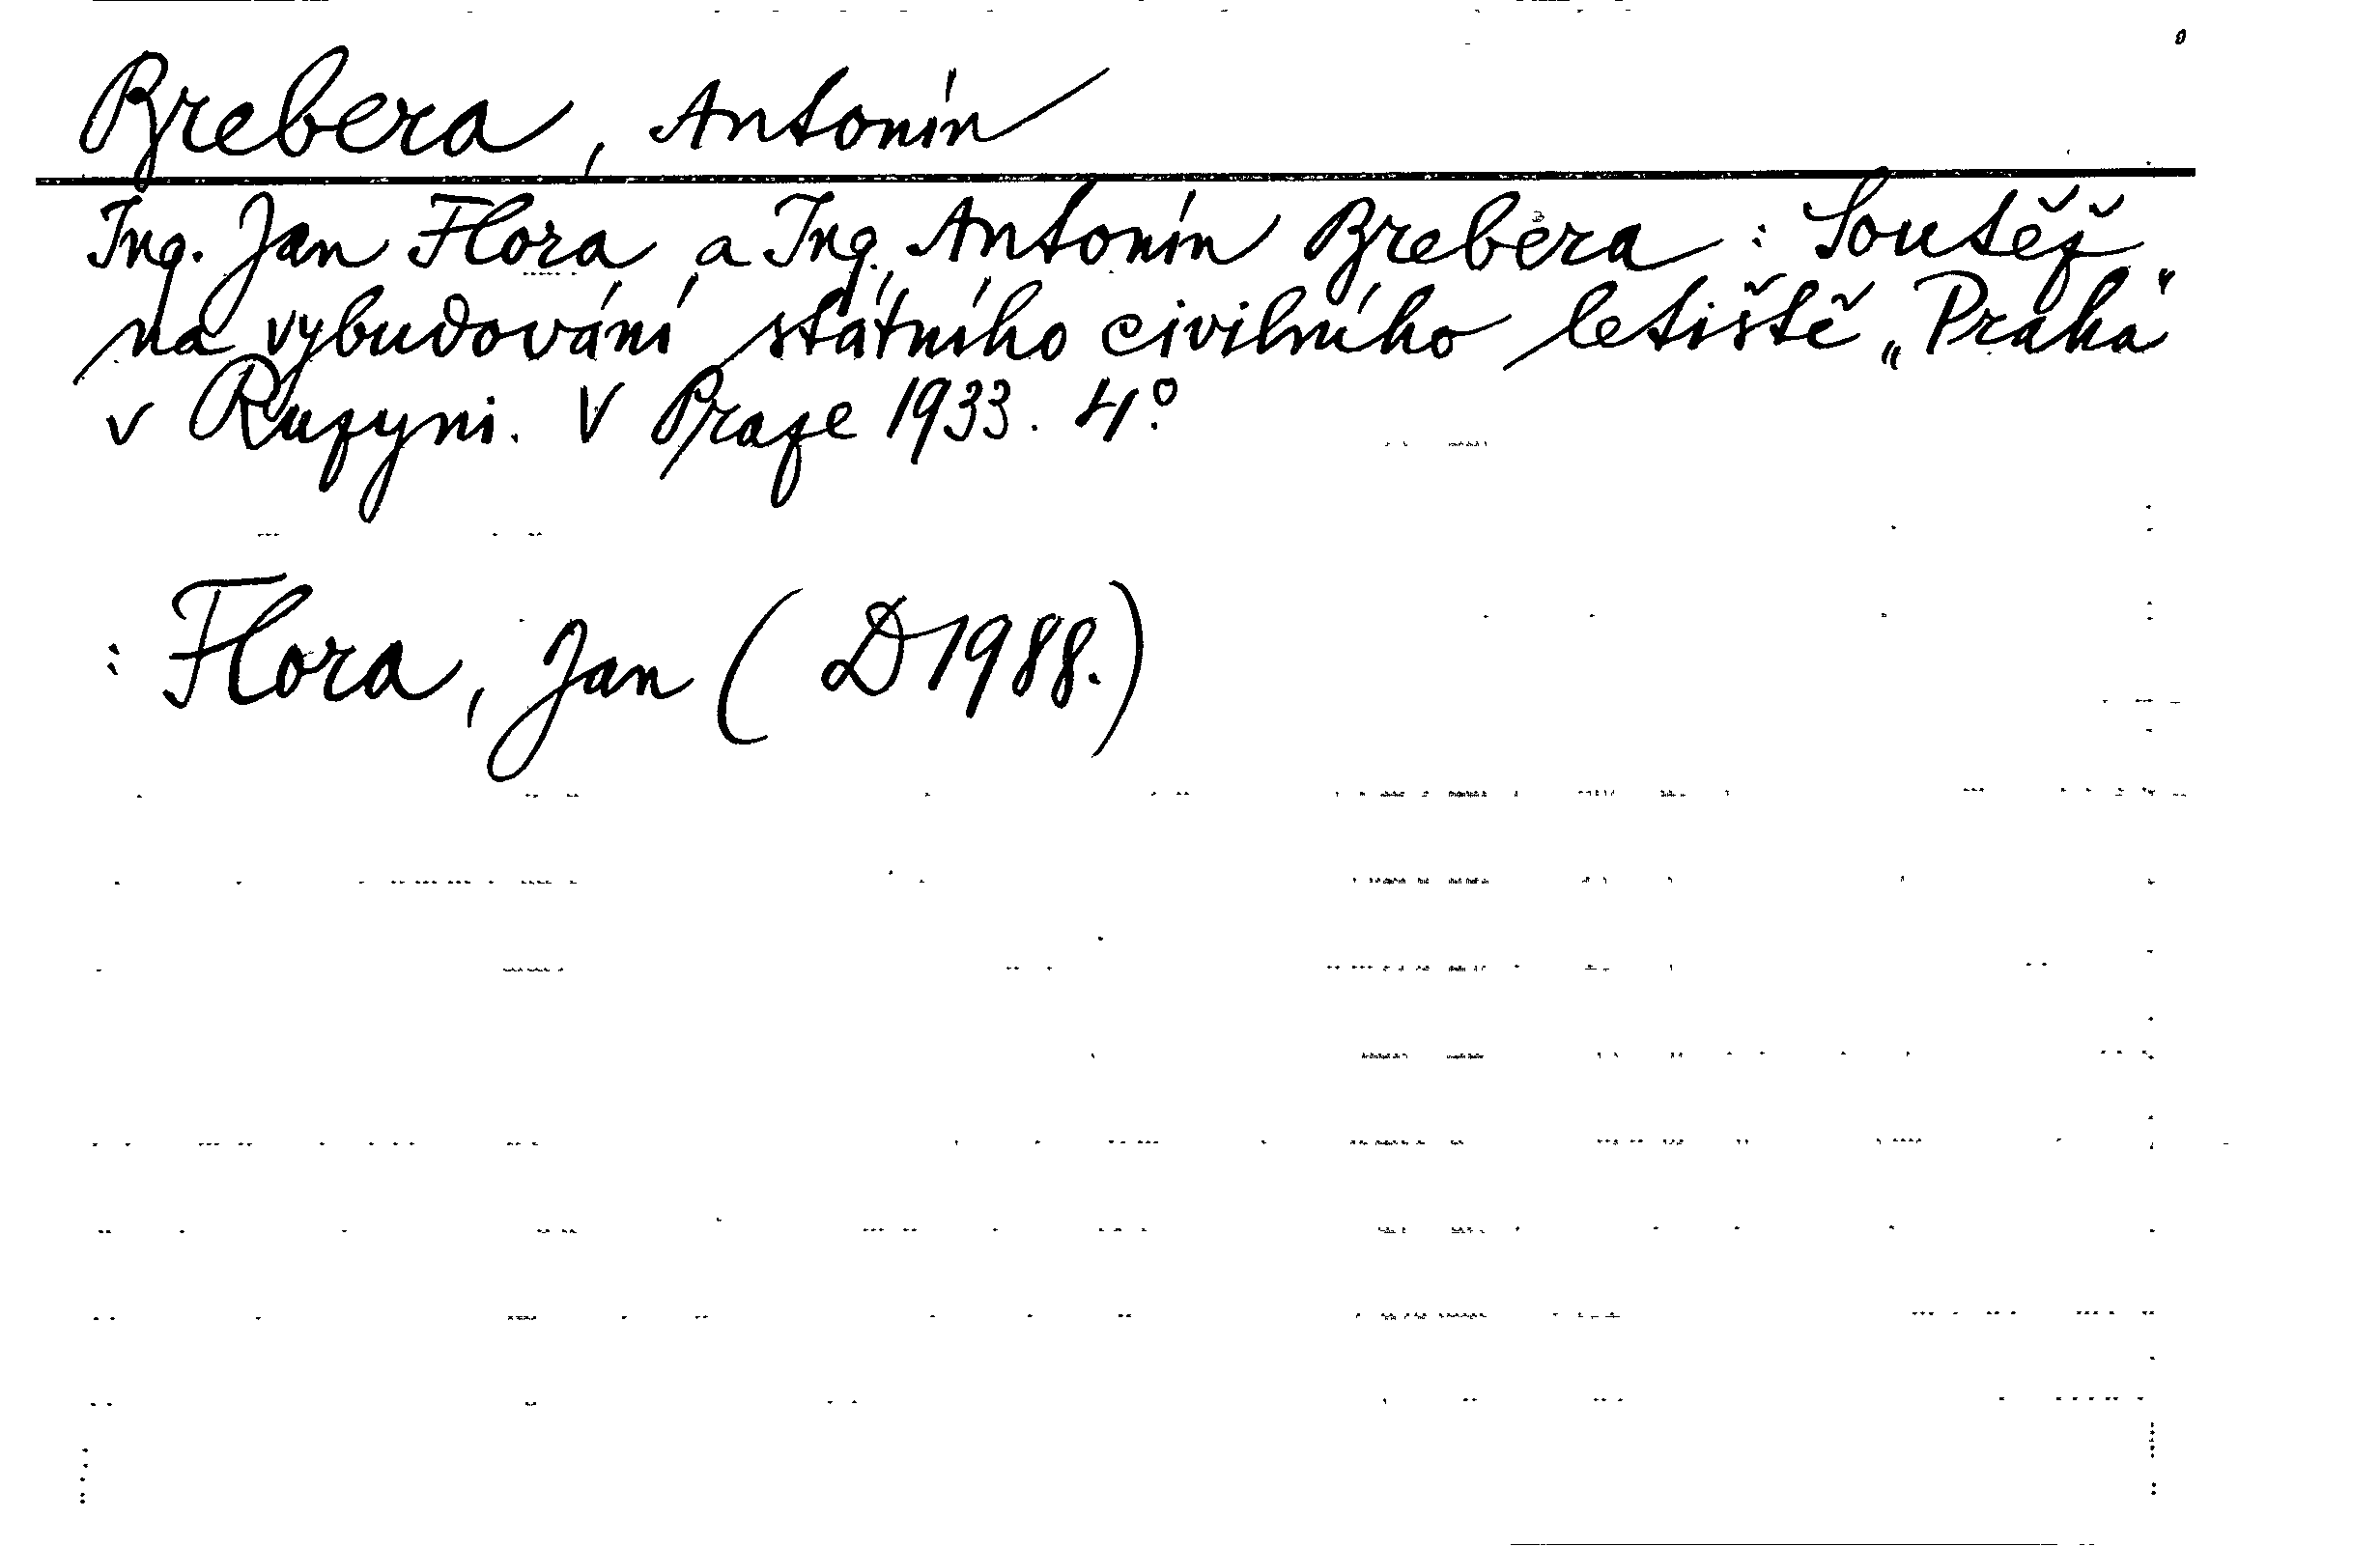 Brebera, Antonín
Ing. Jan Flora a Ing. Antonín Brebera : Soutěž
na vybudování státního civilního letiště „Praha“
v Ruzyni. V Praze 1933. 4°.
: Flora, Jan ( D 1988.)